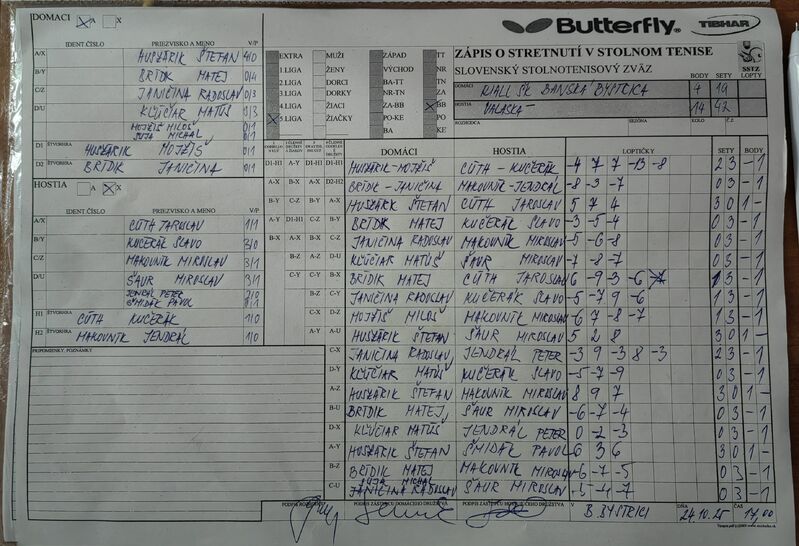 DOMACI A X
Butterfly®
TIBHAR
IDENT.ČÍSLO PRIEZVISKO A MENO V/P
A/X HUSZÁRIK ŠTEFAN 4/0
B/Y BRTDIK MATEJ 0/4
C/Z JANIČINA RADOSLAV 0/3
D/U KĽÚČIAR MATÚŠ 0/3
MOJŽIŠ MILOŠ 0/1
MICHAL 0/1
D1 ŠTVORHRA HUSZÁRIK MOJŽIŠ
D2 BRTDIK JANIČINA
HOSTIA A X
IDENT.ČÍSLO PRIEZVISKO A MENO V/P
A/X CÚTH JAROSLAV 1/1
B/Y KUČERÁK SLAVO 3/0
C/Z MAKOVNÍK MIROSLAV 3/1
D/U ŠAUR MIROSLAV 3/1
JENDRÁL PETER
ŠMIDÁK PAVOL
H1 ŠTVORHRA CÚTH KUČERÁK 1/0
H2 ŠTVORHRA MAKOVNÍK JENDRÁL 1/0
PRIPOMIENKY, POZNÁMKY
EXTRA MUŽI ZÁPAD TT
1.LIGA ŽENY VÝCHOD NR
2.LIGA DORCI BA-TT TN
3.LIGA DORKY NR-TN ZA
4.LIGA ŽIACI ZA-BB BB
5.LIGA ŽIAČKY PO-KE PO
BA KE
ZÁPIS O STRETNUTÍ V STOLNOM TENISE
SLOVENSKÝ STOLNOTENISOVÝ ZVÄZ
SSTZ
BODY SETY LOPTY
DOMÁCI KIALL ŠK BANSKÁ BYSTRICA 4 19
HOSTIA VALASKÁ 14 42
ROZHODCA SEZÓNA KOLO Č.Z
DOMÁCI HOSTIA LOPTIČKY SETY BODY
D1-H1 A-Y D1-H1 D1-H1 HUSZÁRIK-MOJŽIŠ CÚTH-KUČERÁK -4 7 7 -13 -8 2 3 - 1
A-X B-X A-X D2-H2 BRTDIK-JANIČINA MAKOVNÍK-JENDRÁL -8 -3 -7 0 3 - 1
B-Y C-Z B-Y A-X HUSZÁRIK ŠTEFAN CÚTH JAROSLAV 5 7 4 3 0 1 -
A-Y D1-H1 C-Z B-Y BRTDIK MATEJ KUČERÁK SLAVO -3 -5 -4 0 3 - 1
B-X A-X B-X C-Z JANIČINA RADOSLAV MAKOVNÍK MIROSLAV -5 -6 -8 0 3 - 1
B-Z A-Z D-U KĽÚČIAR MATÚŠ ŠAUR MIROSLAV -7 -8 -7 0 3 - 1
C-Y C-Y B-X BRTDIK MATEJ CÚTH JAROSLAV 6 -9 -3 -6 1 3 - 1
B-Z C-Y JANIČINA RADOSLAV KUČERÁK SLAVO -5 -7 9 -6 1 3 - 1
C-X D-Z MOJŽIŠ MILOŠ MAKOVNÍK MIROSLAV -6 7 -8 -7 1 3 - 1
A-Y A-U HUSZÁRIK ŠTEFAN ŠAUR MIROSLAV 5 2 8 3 0 1 -
C-X JANIČINA RADOSLAV JENDRÁL PETER -3 9 -3 8 -3 2 3 - 1
D-Y KĽÚČIAR MATÚŠ KUČERÁK SLAVO -5 -7 -9 0 3 - 1
A-Z HUSZÁRIK ŠTEFAN MAKOVNÍK MIROSLAV 8 9 7 3 0 1 -
B-U BRTDIK MATEJ ŠAUR MIROSLAV -6 -7 -4 0 3 - 1
D-X KĽÚČIAR MATÚŠ JENDRÁL PETER 0 -2 -3 0 3 - 1
A-Y HUSZÁRIK ŠTEFAN ŠMIDÁK PAVOL 6 3 6 3 0 1 -
B-Z BRTDIK MATEJ MAKOVNÍK MIROSLAV -6 -7 -5 0 3 - 1
MICHAL
C-U JANIČINA RADOSLAV ŠAUR MIROSLAV -5 -4 -7 0 3 - 1
PODPIS ROZHODCU PODPIS ZÁSTUPCU DOMÁCEHO DRUŽSTVA PODPIS ZÁSTUPCU HOSŤUJÚCEHO DRUŽSTVA V B.BYSTRICI DŇA 24.10.25 ČAS 17,00